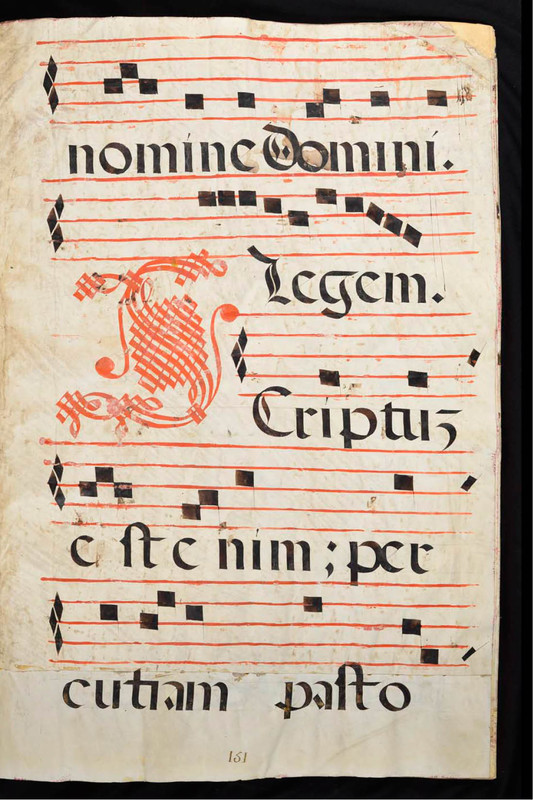 nomine Domini.
Legem.
SCriptuz
e st e nim ; per
cutiam pasto
151